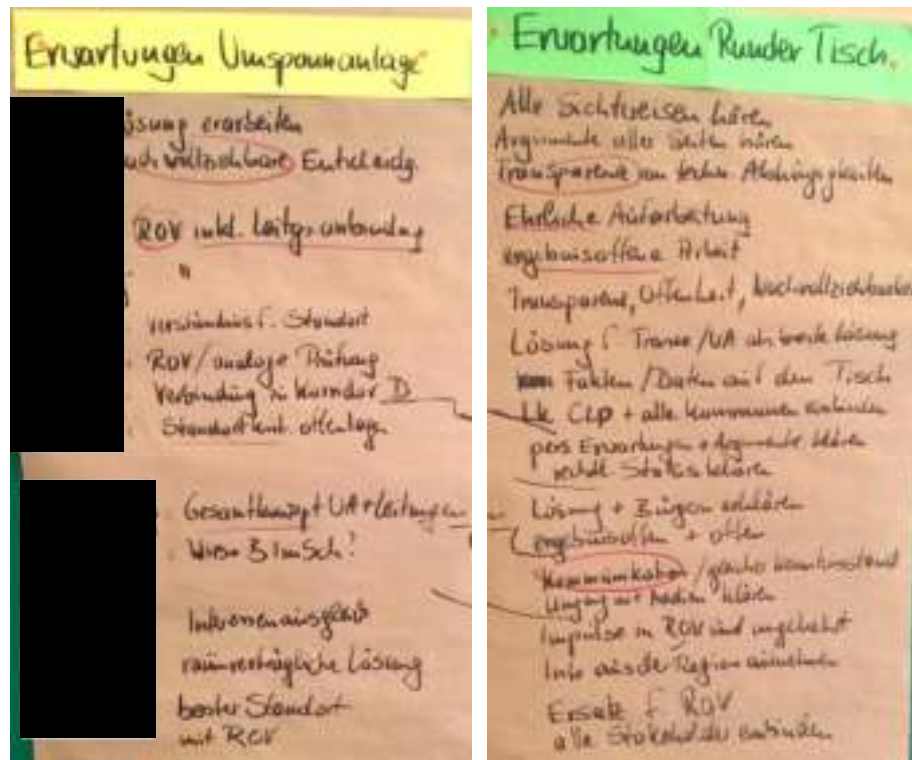 Erwartungen Umspannanlage
ösung erarbeiten
nachvollziehbare Entscheidg.
ROV inkl. Leitgsanbindung
"
Verständnis f. Standort
ROV/analoge Prüfung
Verbindung zu Korridor D
Standort offenlegen
Gesamtkonzept UA+Leitungen
BImSch?
Interessenausgleich
raumverträgliche Lösung
bester Standort
mit ROV
Erwartungen Runder Tisch.
Alle Sichtweisen hören
Argumente aller Seiten hören
Transparenz von Abhängigkeiten
Ehrliche Aufarbeitung
ergebnisoffene Arbeit
Transparenz, Offenheit, Nachvollziehbarkeit
Lösung f. Trasse/UA als beste Lösung
Fakten/Daten auf den Tisch
LK CLP + alle Kommunen einbinden
pers Erwartungen + Argumente klären
rechtl Status klären
Lösung + Bürgern erklären
ergebnisoffen + offen
Kommunikation/gleicher Kenntnisstand
Umgang mit Medien klären
Impulse in ROV und umgekehrt
Info aus der Region aufnehmen
Ersatz f. ROV
alle Stakeholder einbinden